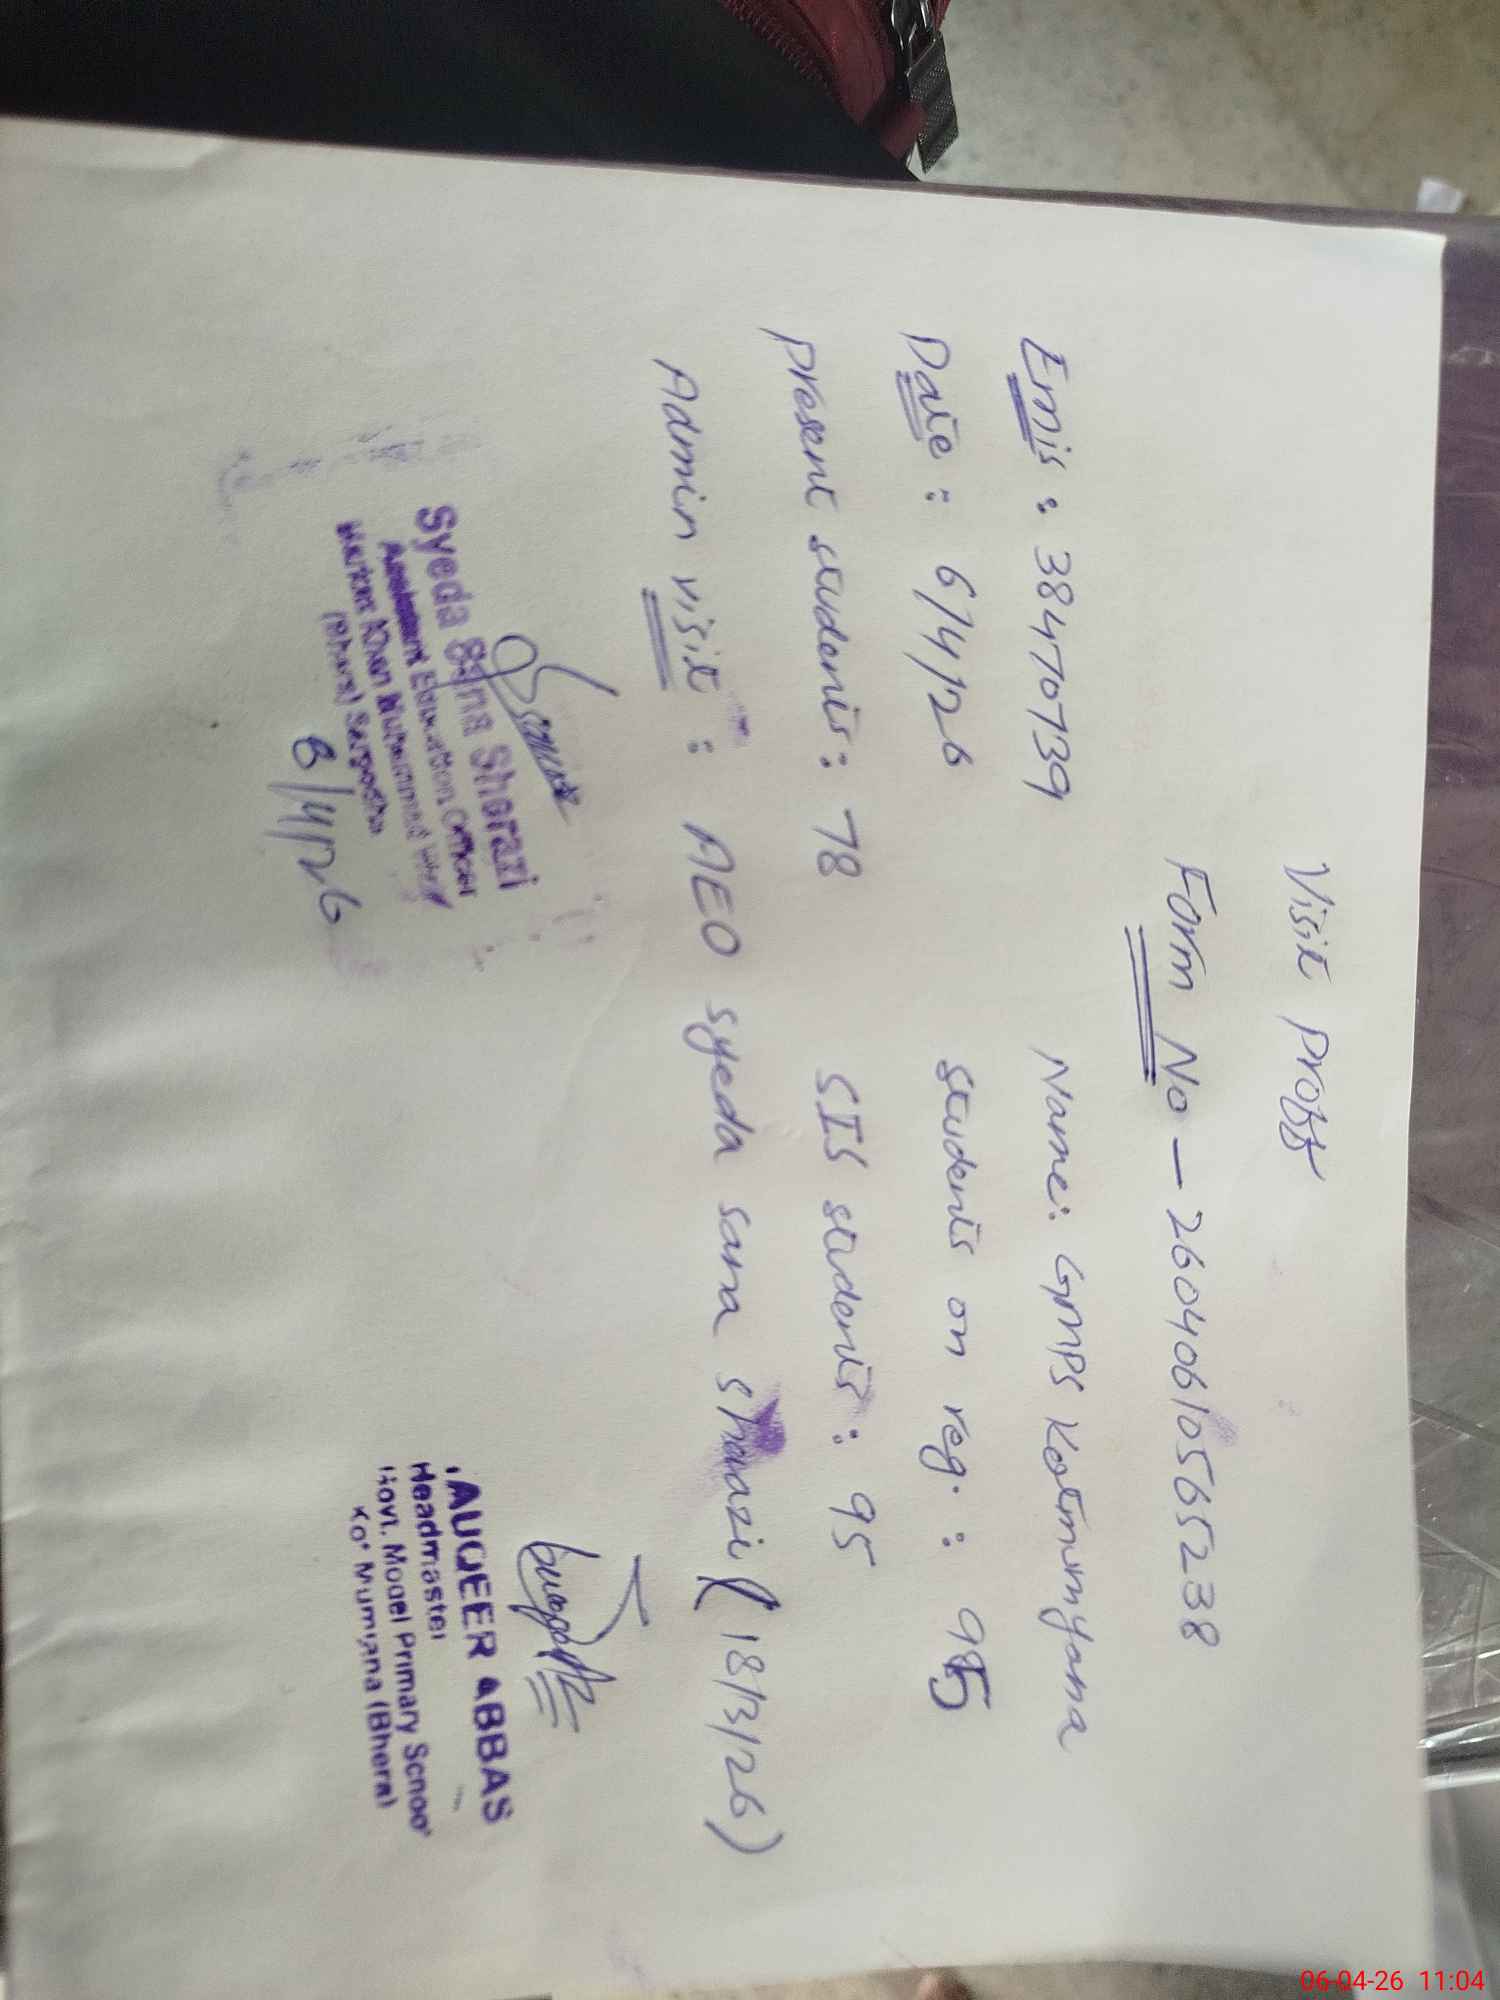 Visit Proff
Form No - 26040610565238
Emis : 38470739 Name: GMPS Kotmmyana
Date : 6/4/26 students on reg. : 95
Present students : 78 SIS students : 95
Admin visit : AEO syeda sana sharazi (18/3/26)
Syeda Sana Sherazi
Assistant Education Officer
Markaz Khan Muhammad
(Bhera) Sargodha
6/4/26
AUQEER ABBAS
Headmaster
Govt. Model Primary School
Kot Mumiana (Bhera)
06-04-26 11:04